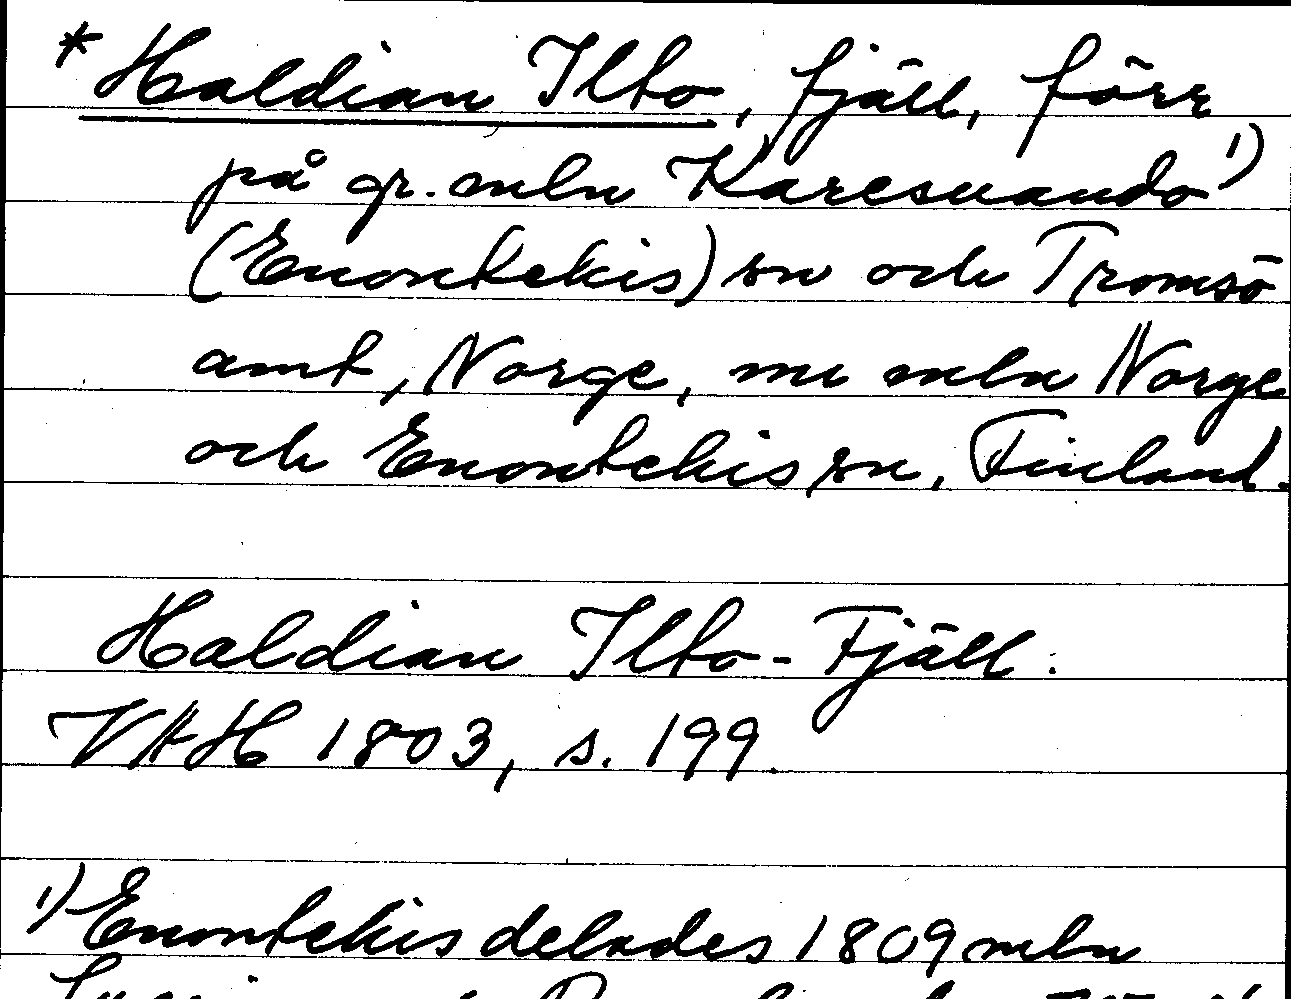 * Haldian Ilto, fjäll, förr
på gr. mln Karesuando 1)
(Enontekis) sn och Tromsö
amt, Norge, nu mln Norge
och Enontekis sn, Finland.
Haldian Ilto-Fjäll.
VAH 1803, s. 199.
1) Enontekis delades 1809 mln